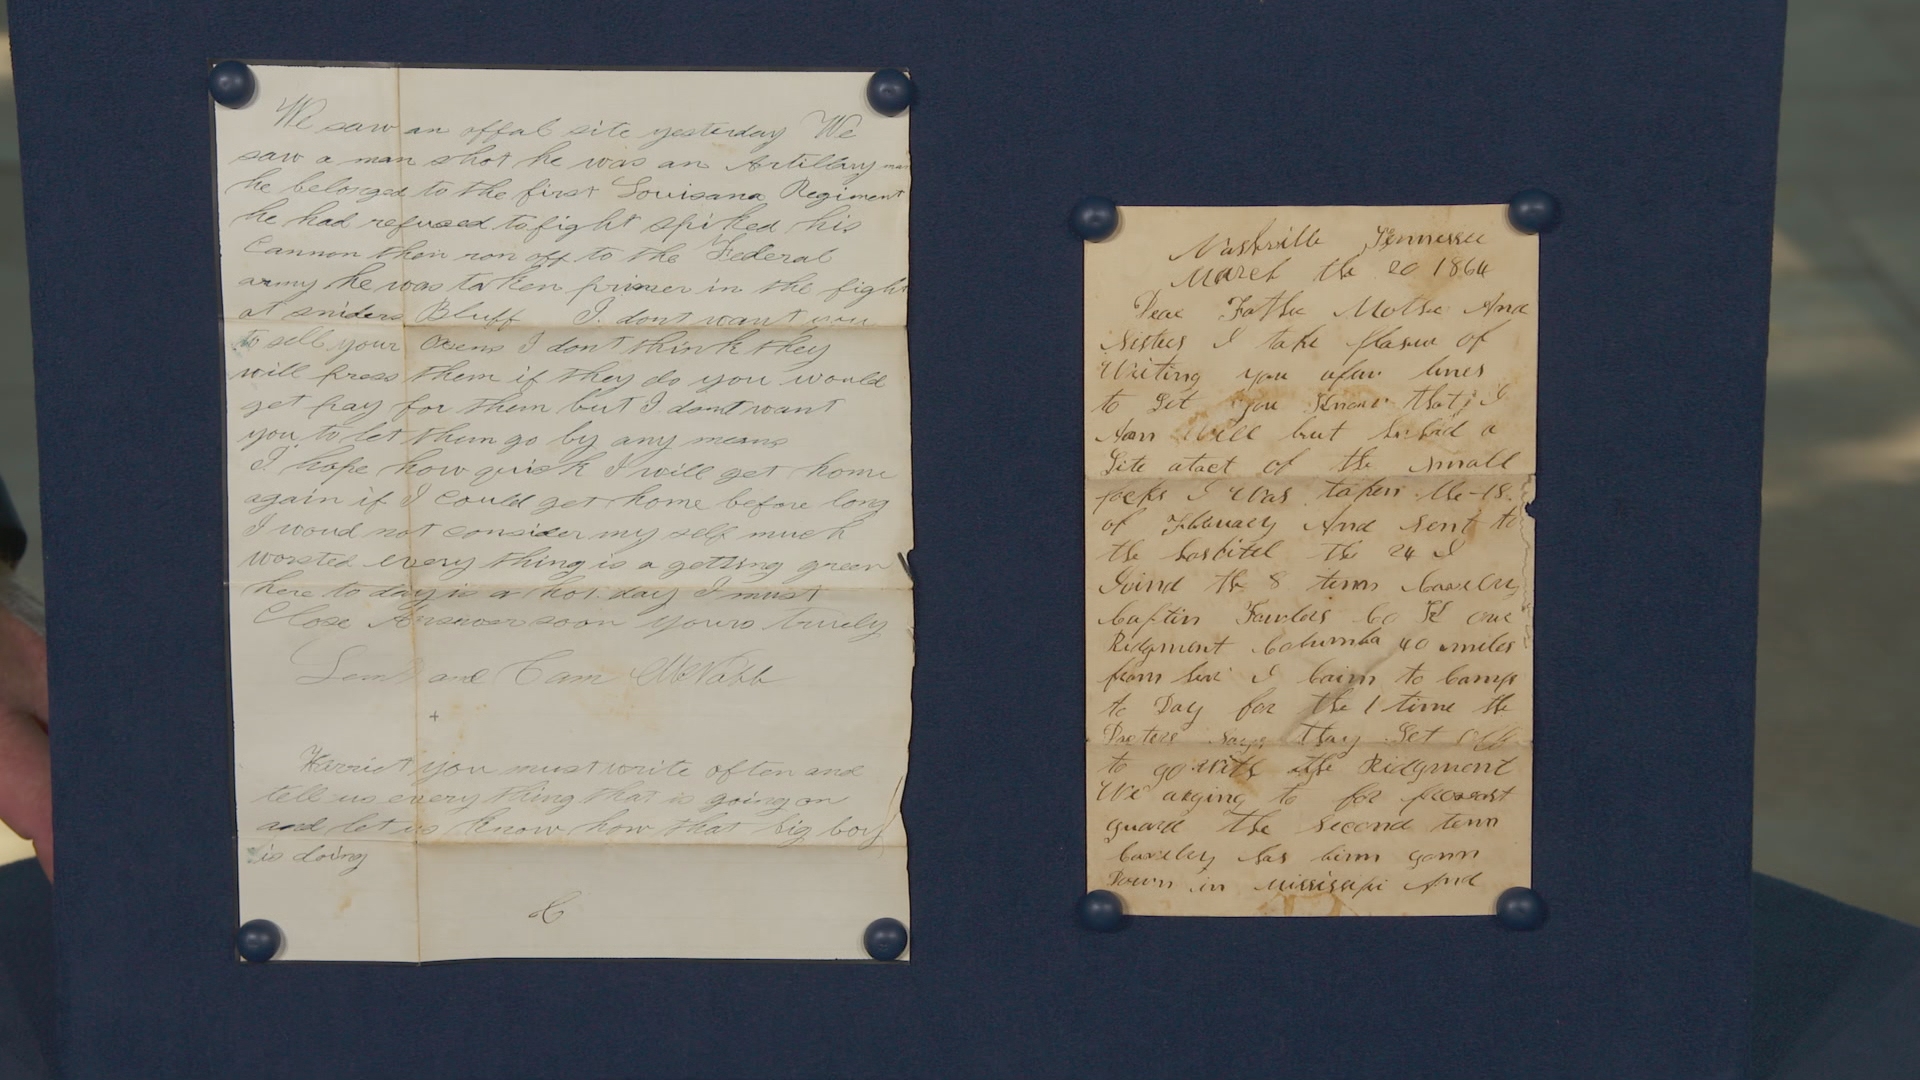 We saw an offal site yesterday We
saw a man shot he was an Artillery man
he belonged to the first Louisana Regiment
he had refused to fight spiked his
Cannon then ron off to the Federal
army he was taken prisner in the fight
at sniders Bluff I dont want you
to sell your Oxens I dont think they
will press them if they do you would
get pay for them but I dont want
you to let them go by any means
I hope how quick I will get home
again if I could get home before long
I woud not consider my self much
worsted every thing is a getting green
here to day is a hot day I must
Close Answer soon yours truely
and Cam McNabb
+
Harriet you must write often and
tell us every thing that is going on
and let us know how that big boy
is doing
Nashville Tennessee
March the 20 1864
Dear Father Mother And
Sisters I take plasur of
Writing you afew lines
to Let you Know that I
Am Well but a
Lite atact of the small
pocks I Was taken the 18
of February And Sent to
the hospitel the 24 I
Joind the 8 tenn
Captin Co
Ridgment Columba 40 miles
from I to Camps
to Day for the 1 time the
Docters Says thay Let
to go With the Ridgment
We aging to for
guard the Second tenn
has binn gonn
Down in Mississipi And